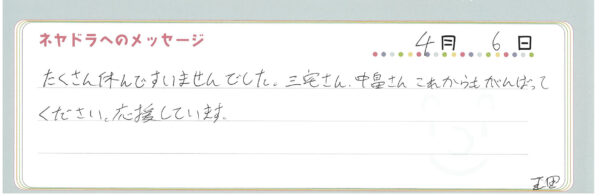 ネヤドラへのメッセージ
4月 6日
たくさん休んですいませんでした。三宅さん、中畠さん これからもがんばって
ください。応援しています。